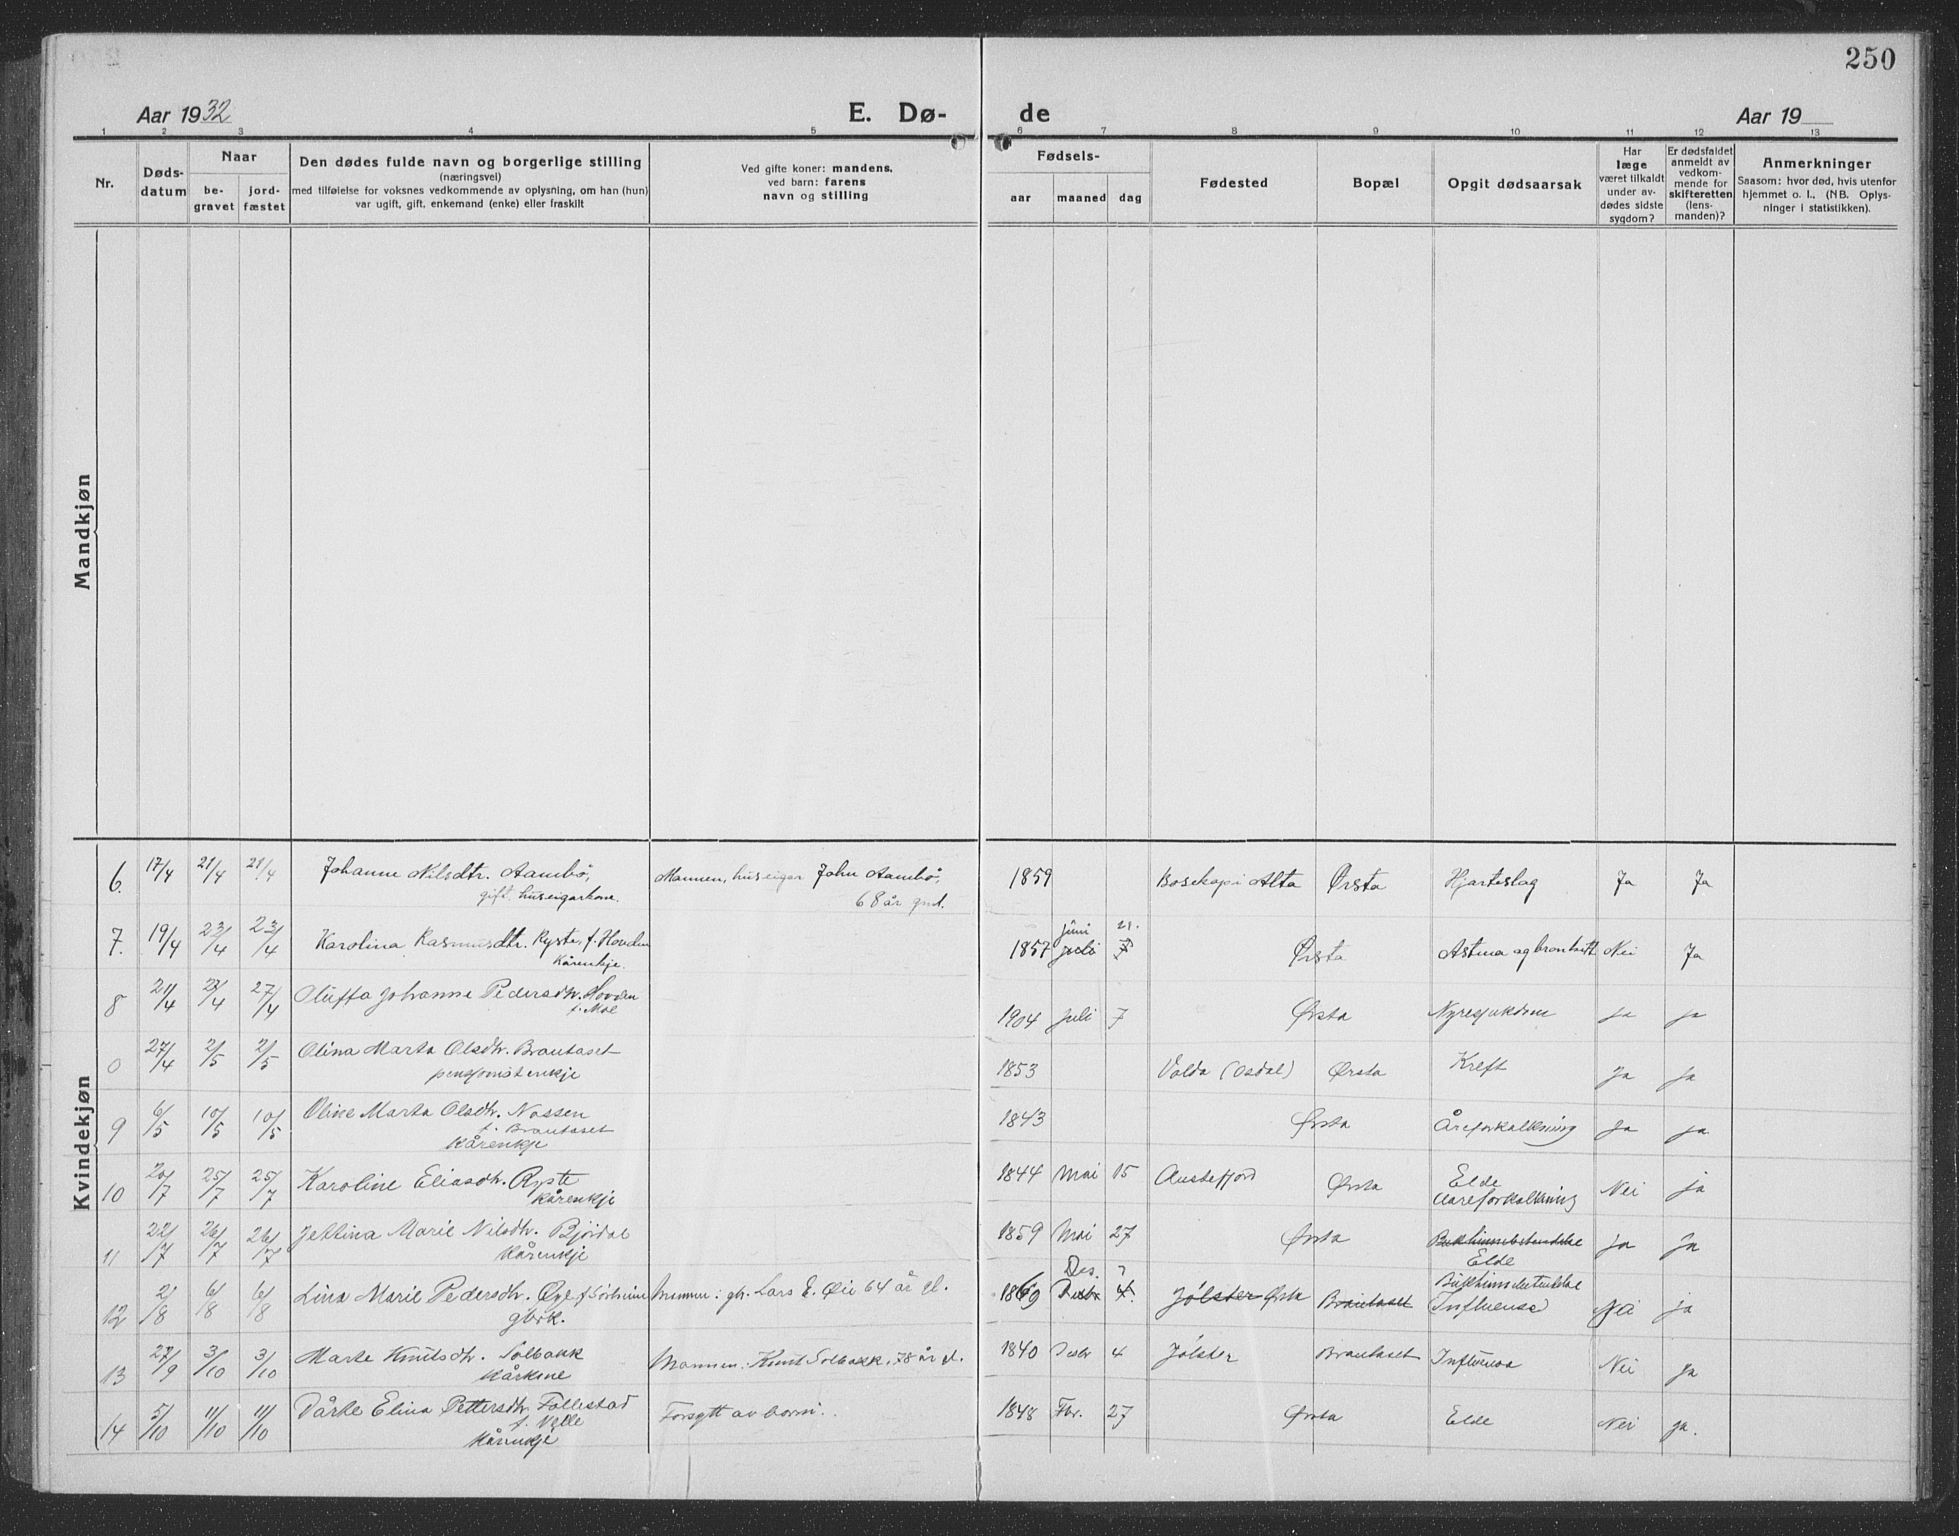 250
Aar 1932
E. Dø-
de
Aar 19
1 2 3 4 5 6 7 8 9 10 11 12 13
Nr.
Døds-
datum
Naar
be-
gravet
jord-
fæstet
Den dødes fulde navn og borgerlige stilling
(næringsvei)
med tilføielse for voksnes vedkommende av oplysning, om han (hun)
var ugift, gift, enkemand (enke) eller fraskilt
Ved gifte koner: mandens,
ved barn: farens
navn og stilling
Fødsels-
aar
maaned
dag
Fødested
Bopæl
Opgit dødsaarsak
Har
læge
været tilkaldt
under av-
dødes sidste
sygdom?
Er dødsfaldet
anmeldt av
vedkom-
mende for
skifteretten
(lens-
manden)?
Anmerkninger
Saasom: hvor død, hvis utenfor
hjemmet o. l., (NB. Oplys-
ninger i statistikken).
Mandkjøn
Kvindekjøn
6. 17/4 21/4 21/4 Johanne Nilsdtr. Aambö, Mannen, huseigar John Aambö, 1859 Bosekop i Alta Ørsta Hjarteslag Ja Ja
gift, huseigarkone. 68 år gml.
juni 21.
7. 19/4 23/4 23/4 Karolina Rasmusdtr. Ryste, f. Hovden 1857 juli 7 Ørsta Astma og bronkitt Nei Ja
Kårenkje.
8 21/4 27/4 Oluffa Johanne Pedersdtr. Hovden 1904 Juli 7 Ørsta Nyresjukdom ja ja
f. Moe
0 27/4 2/5 2/5 Olina Marta Olsdtr. Brautaset 1853 Volda (Osdal) Ørsta Kreft Ja Ja
pensjonistenkje
9 6/5 10/5 10/5 Oline Marta Olsdtr. Nossen 1843 Ørsta Åreforkalkning Ja ja
f. Brautaset
Kårenkje
10 20/7 25/7 25/7 Karoline Eliasdtr. Ryste 1844 Mai 15 Austefjord Ørsta Elde Nei ja
Kårenkje Aareforkalkning
11 22/7 26/7 26/7 Jettina Marie Nilsdtr. Bjørdal 1859 Mai 27 Ørsta Bukhinnebetendelse ja ja
Kårenkje Elde
Des. 7
12 2/8 6/8 6/8 Lina Marie Pedersdtr. Øye f Sörheim Mannen: gbr. Lars E. Øie 64 år gl. 1869 Desbr 4. Jølster Ørsta Brautaset Bukhinnebetendelse Nei ja
gbrk. Influensa
13 27/9 3/10 3/10 Marte Knutsdtr. Solbakk Mannen: Knut Solbakk, 78 år gl. 1840 Desbr 4 Jølster Brautaset Influensa Nei Ja
Kårkone
14 5/10 11/10 11/10 Dårte Elina Pettersdtr. Follestad Forsytt av borni. 1848 Fbr. 27 Ørsta Elde Nei ja.
f. Velle
Kårenkje